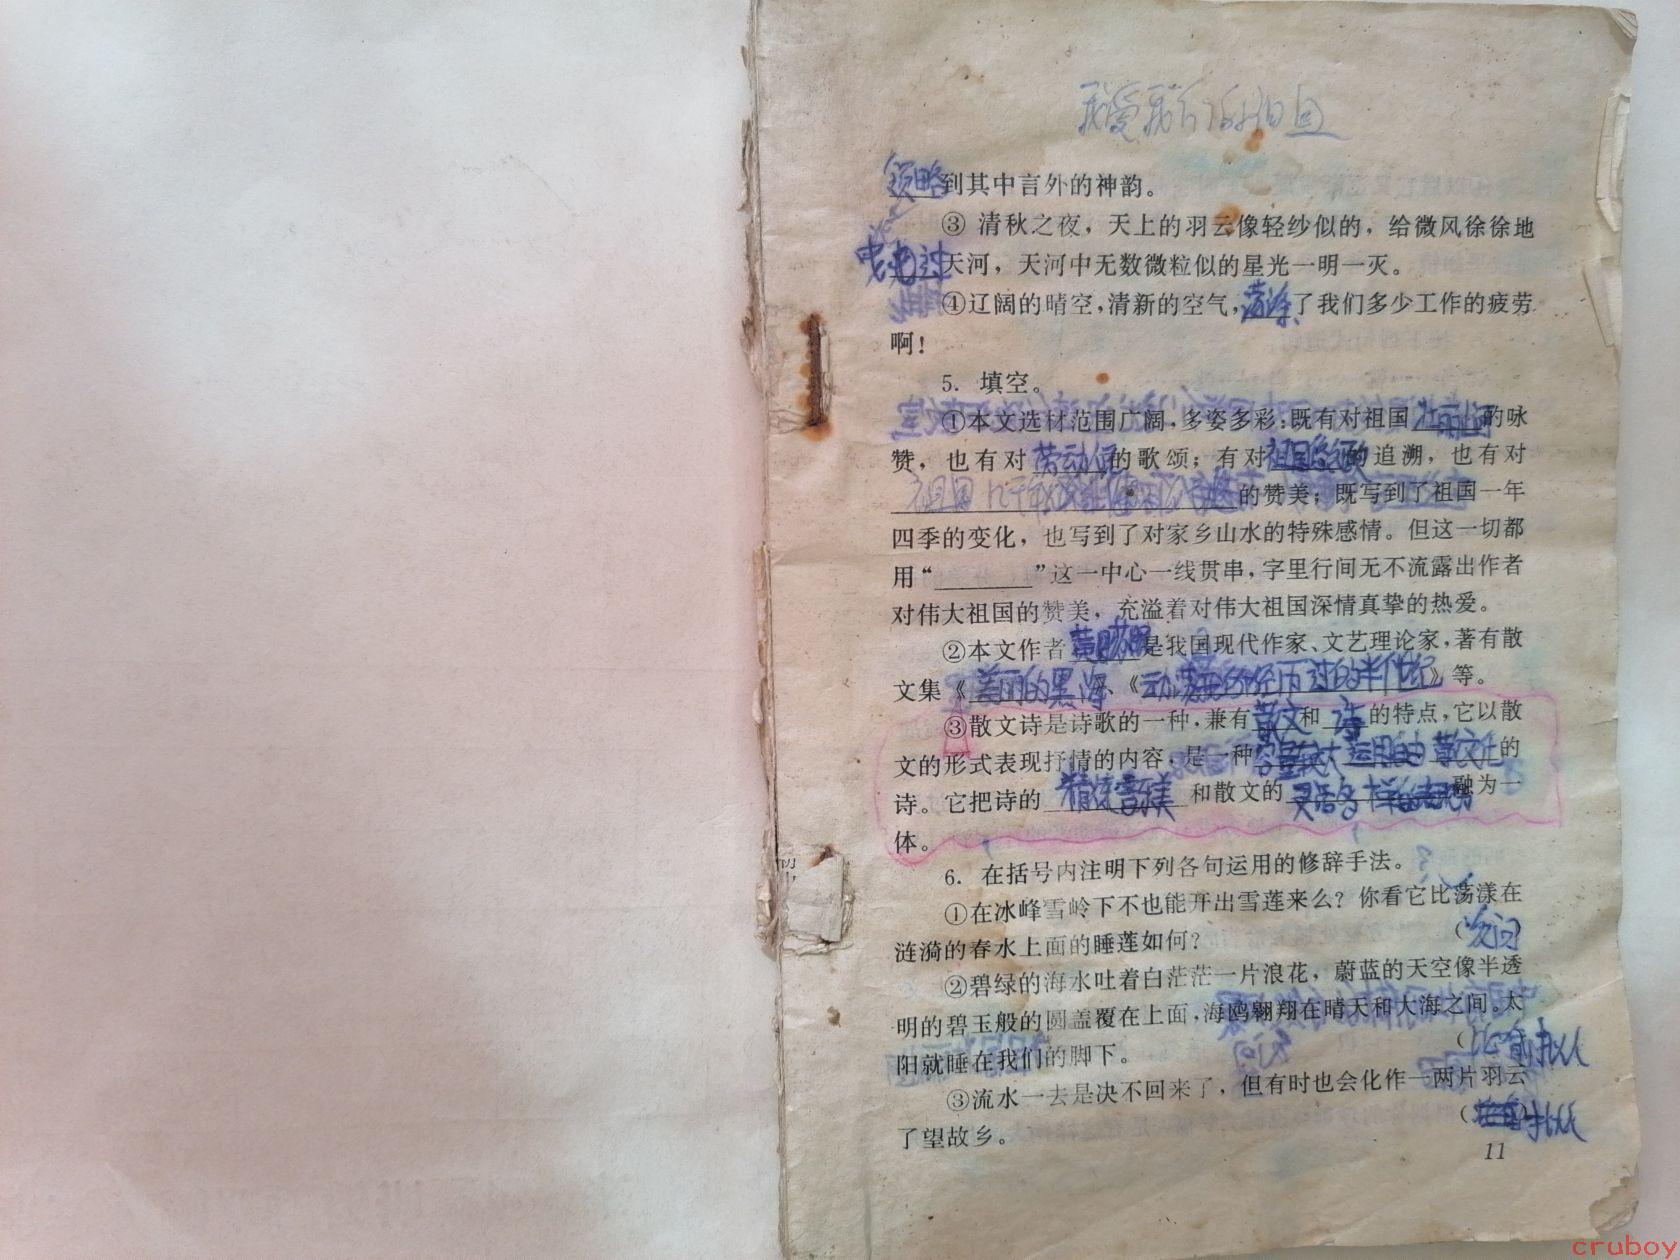 我爱我们的祖国
领略到其中言外的神韵。
③ 清秋之夜，天上的羽云像轻纱似的，给微风徐徐地
天河，天河中无数微粒似的星光一明一灭。
④辽阔的晴空，清新的空气，荡涤了我们多少工作的疲劳
啊！
5. 填空。
①本文选材范围广阔，多姿多彩：既有对祖国 的咏
赞，也有对劳动人民的歌颂；有对祖国 的追溯，也有对
祖国几千年 的赞美；既写到了祖国一年
四季的变化，也写到了对家乡山水的特殊感情。但这一切都
用“________”这一中心一线贯串，字里行间无不流露出作者
对伟大祖国的赞美，充溢着对伟大祖国深情真挚的热爱。
②本文作者黄药眠是我国现代作家、文艺理论家，著有散
文集《美丽的黑海》、《动荡：我所经历过的半个世纪》等。
③散文诗是诗歌的一种，兼有散文和诗的特点，它以散
文的形式表现抒情的内容，是一种容量较大 运用自由 散文化的
诗。它把诗的 精炼 和散文的 灵活多样的 融为一
体。
6. 在括号内注明下列各句运用的修辞手法。
①在冰峰雪岭下不也能开出雪莲来么？你看它比荡漾在
涟漪的春水上面的睡莲如何？ （反问）
②碧绿的海水吐着白茫茫一片浪花，蔚蓝的天空像半透
明的碧玉般的圆盖覆在上面，海鸥翱翔在晴天和大海之间。太
阳就睡在我们的脚下。 （比喻拟人
③流水一去是决不回来了，但有时也会化作一两片羽云
了望故乡。 （ 拟人
11
cruboy